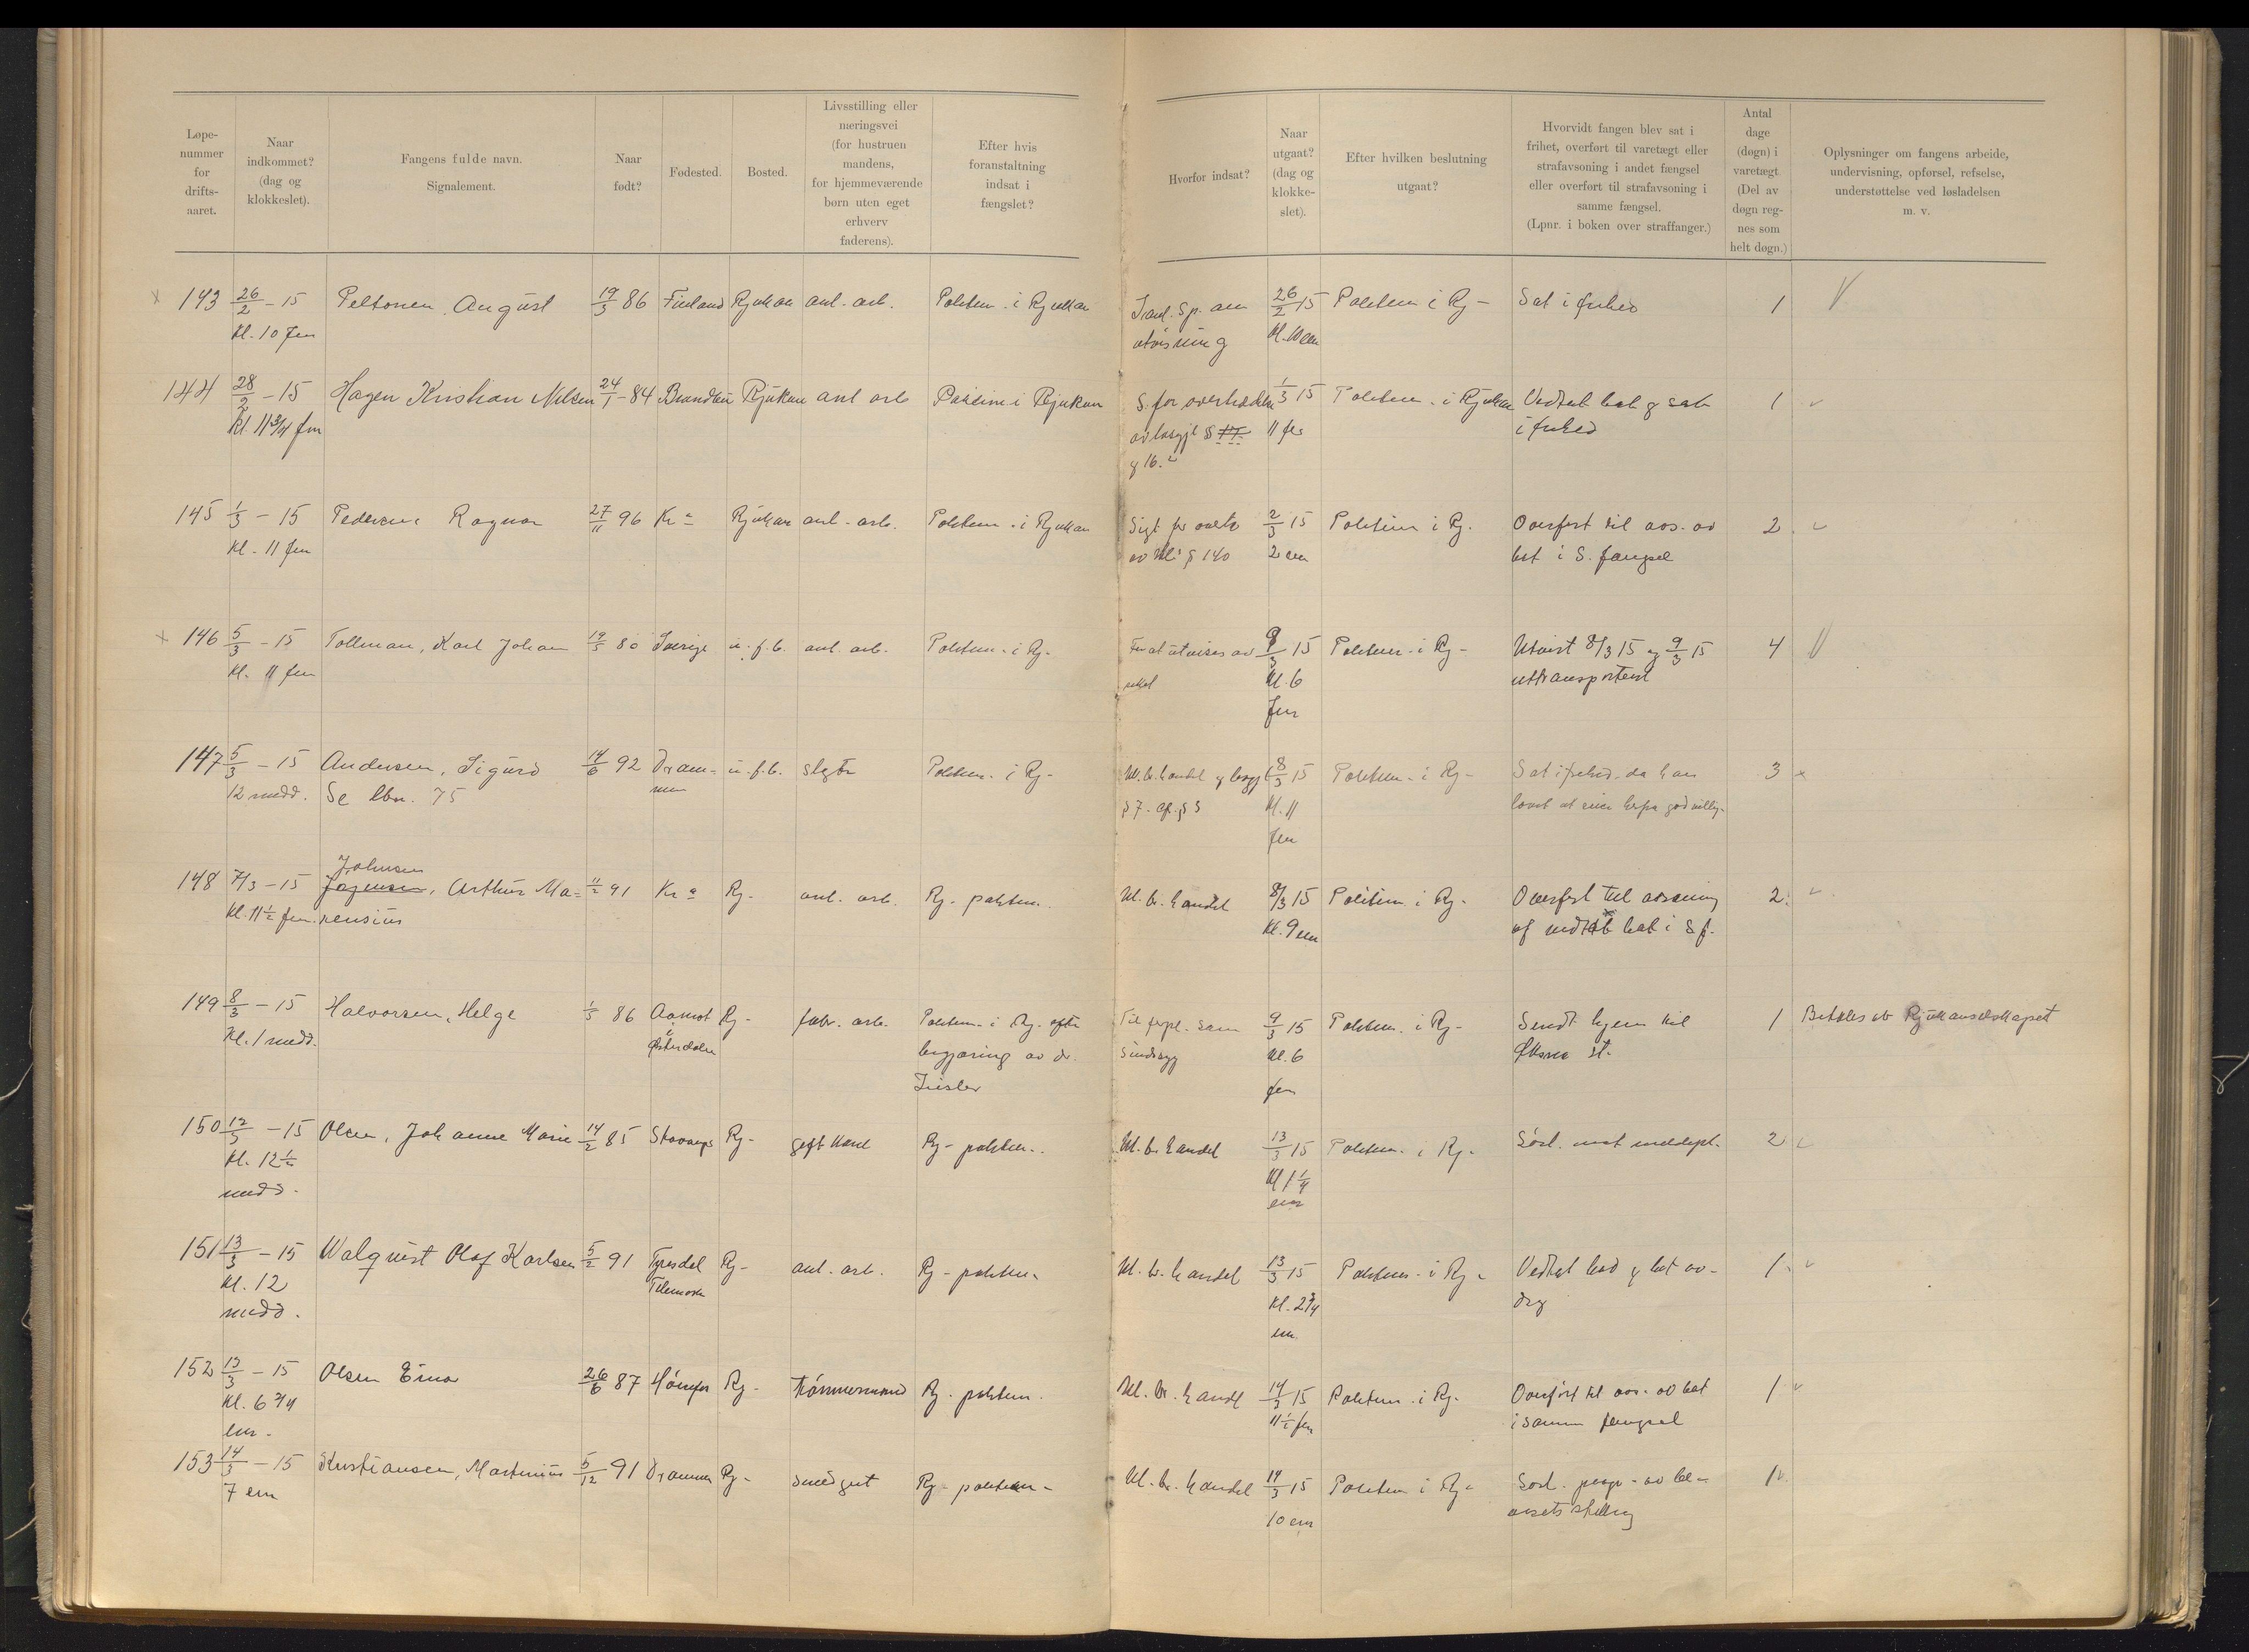 Løpe-
nummer
for
drifts-
aaret.
Naar
indkommet?
(dag og
klokkeslet).
Fangens fulde navn.
Signalement.
Naar
født?
Fødested.
Bosted.
Livsstilling eller
næringsvei
(for hustruen
mandens,
for hjemmeværende
børn uten eget
erhverv
faderens).
Efter hvis
foranstaltning
indsat i
fængslet?
Hvorfor indsat?
Naar
utgaat?
(dag og
klokke-
slet).
Efter hvilken beslutning
utgaat?
Hvorvidt fangen blev sat i
frihet, overført til varetægt eller
strafavsoning i andet fængsel
eller overført til strafavsoning i
samme fængsel.
(Lpnr. i boken over straffanger.)
Antal
dage
(døgn) i
varetægt
(Del av
døgn reg-
nes som
helt døgn.)
Oplysninger om fangens arbeide,
undervisning, opførsel, refselse,
understøttelse ved løsladelsen
m. v.
x 143 26/2 - 15 Peltonen, August 19/3 86 Finland Rjukan anl. arb. Politim. i Rjukan
Kl. 10 fm
sp. om 26/2 15 Politim i Rj - Sat i frihed 1
utvisning
144 28/2 - 15 Hagen Kristian Nilsen 24/1 - 84 Brandbu Rjukan anl arb Politim i Rjukan
Kl. 11 3/4 fm
S. for overtrædelse 1/3 15 Politim. i Rjukan Vedtat bot og sat 1
av løsgjl § 17 11 fm i frihed
g 16.
145 1/3 - 15 Pedersen Ragnar 27/11 96 Kr a Rjukan anl. arb. Politim. i Rjukan
Kl. 11 fm
Sigt for overtr 2/3 15 Politim i Rj. Overført til avs. av 2
§ 140 2 em bot i S. fængsel
x 146 5/3 - 15 Tollman, Karl Johan 19/5 80 Sverige u. f. b. anl. arb. Politim. i Rj.
Kl. 11 fm
For at utvises av 9/3 15 Politim. i Rj - Utvist 8/3 15 og 9/3 15 4
riket Kl. 6 uttransportert
fm
147 5/3 - 15 Andersen, Sigurd 14/6 92 Dram- u. f. b. slagter Politim. i Rj -
12 midd. Se lbn. 75 men
Ul. br. handel og løsgjl 8/3 15 Politim. i Rj - Sat i frihed, da han 3
§ 7. cfr. § 3 Kl. 11 lovet at reise herfra godvillig.
fm
Johnsen
148 7/3 - 15 Jørgensen, Arthur Ma- 11/2 91 Kr a Rj. anl. arb. Rj. politim.
Kl. 11 1/2 fm. rensius
Ul. br. handel 8/3 15 Politim. i Rj. Overført til avsoning 2
Kl. 9 em af vedtat bot i S f.
149 8/3 - 15 Halvorsen, Helge 1/5 86 Aamot Rj. fabr. arb. Politim. i Rj. efter
Kl. 1 midd. i begjæring av dr.
Østerdalen
Til forpl. som 9/3 15 Politim. i Rj - Sendt hjem til 1 Betales av Rjukanselskapet
sindssyg Kl. 6 st.
fm
150 12/3 - 15 Olsen, Johanne Marie 14/2 85 Stavanger Rj - gift kone Rj - politim.
Kl. 12 1/2
midd.
Ul. br. handel 13/3 15 Politim. i Rj. Løsl. mot meldepl. 2
Kl 1 1/4
em
151 13/3 - 15 Walquist Olaf Karlsen 5/2 91 Tyrisdal Rj - anl. arb. Rj - politim.
Kl. 12 Telemark
midd.
Ul. br. handel 13/3 15 Politim. i Rj - 1
Kl. 2 3/4
em.
152 13/3 - 15 Olsen Einar 26/6 87 Hønefos Rj - tømmermand Rj. politim.
Kl. 6 3/4
em.
Ul. br. handl 14/3 15 Politim. i Rj. Overført til avs. av bot 1
11 1/2 fm i samme fængsel
153 14/3 - 15 Kristiansen, Martinius 5/12 91 Drammen Rj - smedgut Rj - politim -
7 em
Ul. br. handel 14/3 15 Politim i Rj - 1
10 em